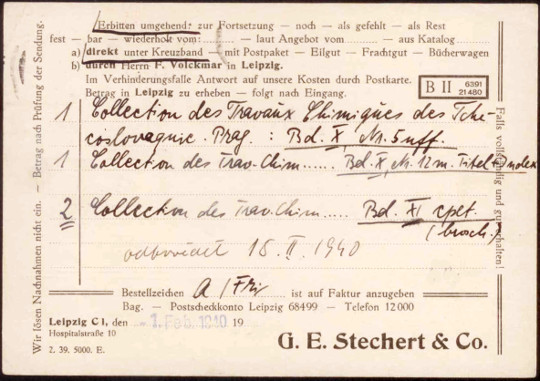 Erbitten umgehend: zur Fortsetzung — noch — als gefehlt — als Rest
fest — bar — wiederholt vom: — laut Angebot vom — aus Katalog
a) direkt unter Kreuzband — mit Postpaket — Eilgut — Frachtgut — Bücherwagen
b) durch Herrn F. Volckmar in Leipzig.
Im Verhinderungsfalle Antwort auf unsere Kosten durch Postkarte.
Betrag in Leipzig zu erheben — folgt nach Eingang.
B II 6391 21480
1 Collection des Travaux Chimiques des Tche-
coslovaquie. Prag. : Bd. X, Nr. 5 uff.
1 Collection des Trav. Chim...... Bd. X, Nr. 12 m. Titel + Index
2 Collection des Trav. Chim..... Bd. XI cplt.
(brosch.)
odpovědět 15. II. 1940
Bestellzeichen A / ist auf Faktur anzugeben
Bag. — Postscheckkonto Leipzig 68499 — Telefon 12000
Leipzig C 1, den -1. Feb. 1940 19
Hospitalstraße 10
2. 39. 5000. E.
G. E. Stechert & Co.
Wir lösen Nachnahmen nicht ein. — Betrag nach Prüfung der Sendung.
Falls vollständig und gut erhalten!